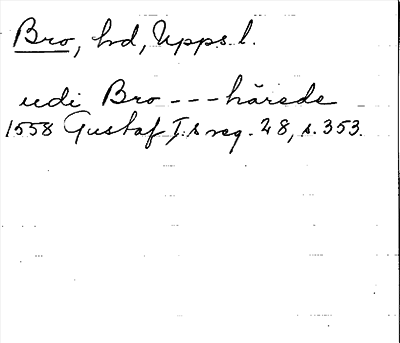 Bro, hd, Upps. l.
udi Bro --- härede
1558 Gustaf I:s reg. 28, s. 353.